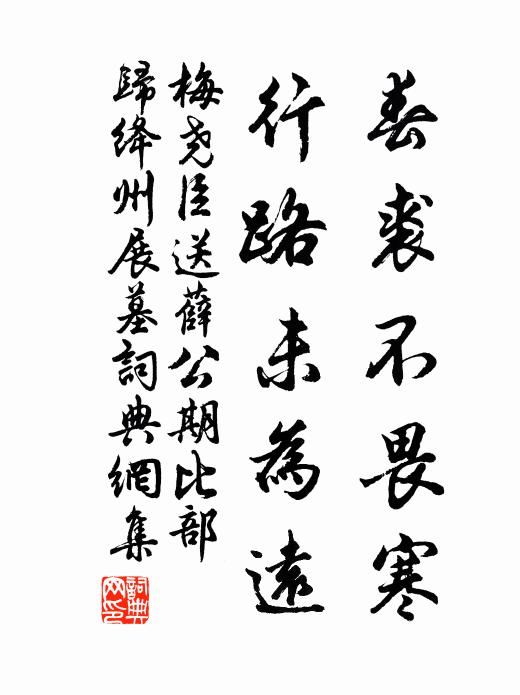 春裘不畏寒
行路未為遠
梅尧臣送薛公期比部
歸绛州展墓詞典網集
詞典
网印